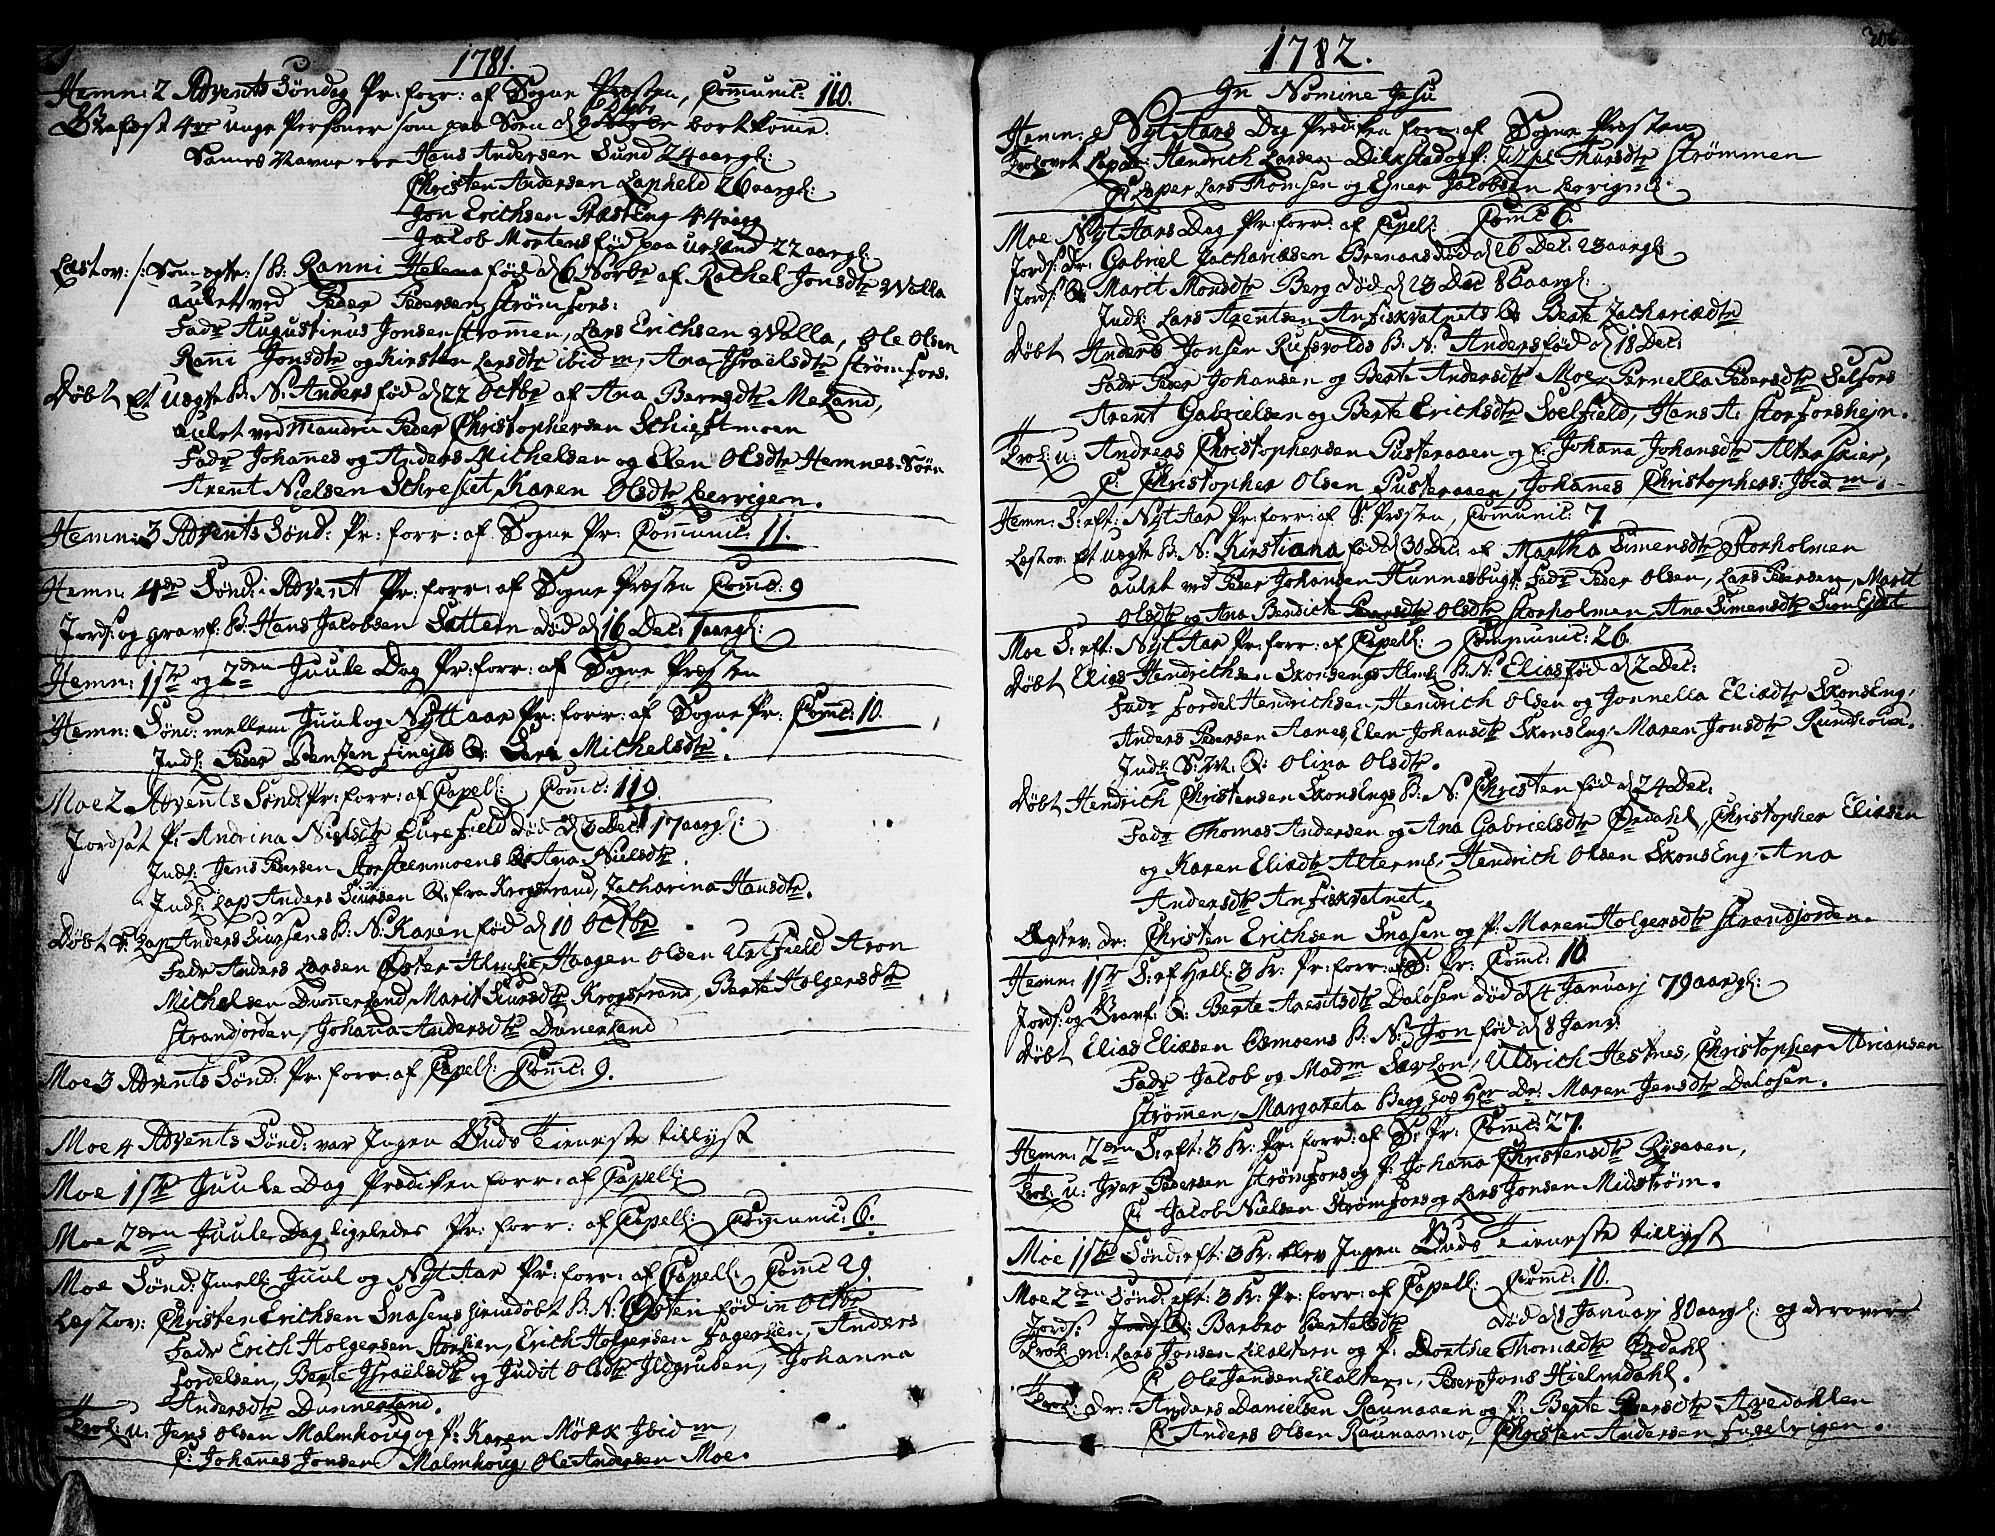 1781.
Hemn: 2 Advents Søndag Pr: forr: af Sogne Præsten, Comunic: 110.
4re unge Personer som paa Søen d bortkomne.
Sames Navne ere Hans Andersen Sund 24 aargl:
Christen Andersen Lapheld 26 aargl:
Jon Erichsen Præsteng 44 aarg
Jacob Mortens fød paa Urland 22 aargl:
Læstov: /: Som ægte: / B: Ranni Helena fød d 6 Norbr af Rachel Jonsdtr Wolla
aulet ved Peder Pedersen Strømfors:
Fadr Augustinus Jonsen Strømen, Lars Erichsen Wolla, Ole Olsen
Rani Jonsdtr og Kirsten Larsdtr ibidm, Ana Israelsdtr Strømfors.
Døbt Et uægte B: N: Anders fød d 22 Octbr af Ana Berndtr Meland,
aulet ved Peder Christophersen Schieftmoen
Fadr Johanes og Anders Michelsen og Elen Olsdtr Hemnes-Søen
Arent Nielsen Schreslet, Karen Olsdtr Leervigen.
Hemn: 3 Advents Sønd: Pr: forr: af Sogne Pr: Comunic: 11.
Hemn: 4de Sønd: i Advent Pr: forr: af Sogne Præsten Comc: 9
Jords: og gravf: B: Hans Jacobsen Sættern død d 16 Dec: 1 aargl:
Hemn: 1ste og 2den Juule Dag Pr: forr: af Sogne Præsten
Hemn: Sønd: mellem Juul og Nyttaar Pr: forr: af Sogne Pr: Comc: 10.
Indl: Peder Bentzen Q: Sara Michelsdtr.
Moe 2 Advents Sønd: Pr: forr: af Capell: Comc: 119.
Jordsat P: Andrina Nielsdtr Lurefield død d 3 Dec: 17 aargl:
Indl: Jens Pedersen Storsteenmoens Q: Ana Nielsdtr.
Indl: Lap Anders Siursen Q: fra Krogstrand, Zacharina Hansdtr.
Døbt Lap Anders Siursens B: N: Karen fød d 10 Octbr
Fadr Anders Larsen Øster Almlie, Haagen Olsen Urtfield Aron
Michelsen Dunnerland, Marit Siursdtr Krogstrand, Berte Holgersdtr
Strandjorden, Johana Andersdtr Dunerland
Moe 3 Advents Sønd: Pr: forr: af Capell: Comc: 9.
Moe 4 Advents Sønd: var Ingen Guds Tieneste tillyst
Moe 1ste Juule Dag Prædiken forr: af Capell:
Moe 2den Juule Dag ligeledes Pr: forr: af Capell: Comunic: 6.
Moe Sønd: Imell: Juul og Nyt Aar Pr: forr: af Capell: Comc 29.
Læstov: Christen Erichsen Snasens hiemdøbt B: N: Østen fød in Octbr
Fadr Erich Holgersen Storlien, Erich Holgersen Fagerlien, Anders
Fordelsen, Berte Israëlsdtr og Judit Olsdtr Ildgruben, Johanna
Andersdtr Dunnerland.
Trol: u: Jens Olsen Malmhoug og P: Karen Mørk Ibidm,
C: Johanes Jonsen Malmhoug, Ole Andersen Moe.
1782.
In Nomine Jesu
Hemn: Nyt Aars Dag Prædiken forr: af Sogne Præsten
Trolovet Lapdr: Hendrich Larsen Dilkestad og P: Thursdtr Strømmen
C: Laper Lars Thomsen og Egner Jacobsen Leervigens:
Moe Nyt Aars Dag Pr: forr: af Capell: Comc 6.
Jords: Dr: Gabriel Zachariæsen Brenaas død d 26 Dec: 23 aargl:
Jords: Q: Marit Monsdtr Berg død d 23 Dec 86 aargl:
Indl: Lars Arentsen Anfiskvatnets Q: Berte Zachariædtr
Døbt Anders Jonsen Rufsvolds B: N: Anders fød d 18 Dec:
Fadr Peder Johansen og Berte Andersdtr Moe, Pernella Pedersdtr Selfors
Arent Gabrielsen og Berte Erichsdtr Soelfield, Hans A: Storforshejn.
Trol: u: Andreas Christophersen Pusteraaen og P: Johana Johansdtr Alterskier,
C: Christopher Olsen Pusteraaen, Johanes Christophers: Ibidm.
Hemn: S: eft: Nyt Aar Pr: forr: af S: Præsten, Comunic: 7.
Læstov: Et uægte B: N: Kirstiana fød d 30 Dec: af Martha Simensdtr Storholmen
aulet ved Peder Johansen Hunnesbugt. Fadr Peder Olsen, Lars Pedersen, Marit
Olsdtr og Ana Bendicte Pedersdtr Olsdtr Storholmen, Ana Simensdtr
Moe S: eft: Nyt Aar Pr: forr: af Capell: Comunic: 26.
Døbt Elias Hendrichsen Skonsengs Alml: B: N: Elias fød d 2 Dec:
Fadr Fordel Hendrichsen, Hendrich Olsen og Jonnella Eliædtr Skonseng,
Anders Pedersen Aanes, Elen Johansdtr Skonseng, Maren Jonsdtr Rundmoen.
Indl: S: M: Q: Olina Olsdtr.
Døbt Hendrich Christensen Skonsengs B: N: Christen fød d 24 Dec:
Fadr Thomas Andersen og Ana Gabrielsdtr Ørdahl, Christopher Eliæsen
og Karen Eliædtr Alterns, Hendrich Olsen Skonseng, Ana
Andersdtr Anfiskvatnet.
Ægtev: dr: Christen Erichsen Snasen og P: Maren Holgersdtr Strandjorden.
Hemn: 1ste S: ef Hell: 3 K: Pr: forr: af S: Pr: Comc: 10.
Jords: og Gravf: Q: Berte Arentsdtr Dalosen død d 4 Januarj 79 aargl:
Døbt Elias Eliæsen Osmoens B: N: Jon fød d 8 Janr:
Fadr Jacob og Madm Saxlon, Uldrich Hestnes, Christopher Adriansen
Strømen, Margareta Berg hos Hr Dr: Maren Jensdtr Dalosen.
Hemn: 2den S: eft: 3 K: Pr: forr: af S: Pr: Comc: 27.
Trol: u: Iver Pedersen Strømfors og P: Johana Christensdtr Ryeaaen,
C: Jacob Nielsen Strømfors og Lars Jonsen Midstrøm.
Moe 1ste Sønd: eft: 3 K: blev Ingen Guds Tieneste tillyst
Moe 2den Sønd: eft: 3 K: Pr: forr: af Capell: Comc: 10.
Jords: Jords: Q: Barbro Bertelsdtr død d Januarj 80 aargl: og derover
Trol: m: Lars Jonsen Lilaltern og P: Dorthe Thomædtr Ørdahl
C: Ole Jansen Lilaltern, Peder Jons Hielmdahl.
Trol: dr: Anders Danielsen Raunaaen og P: Berte Pedersdtr Avedahlen
C: Anders Olsen Raunaamo, Christen Andersen Fugelvigen.